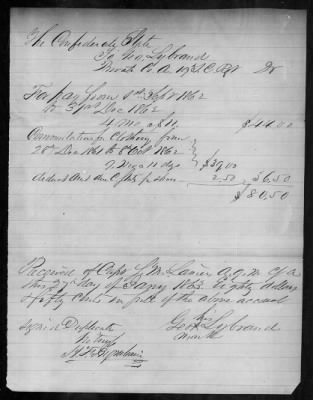 The Confederate State
To Geo Lybrand
Private Co A 19 S.C. Rgt Dr
For pay from 1st Sept 1862
to 31st Dec 1862
4 mo @ 11 $44.00
Commutation for Clothing from
28th Dec 1861 to 8 Oct 1862
9 mos 11 dys $39.00
deduct 2.50 36.50
$80.50
Received of Capt L. M. Lanier A.Q.M. C.S.A
this 27th day of Jany 1863 Eighty dollars
& fifty Cents in full of the above account
Signed Duplicate
Witness
his
Geo X Lybrand
mark